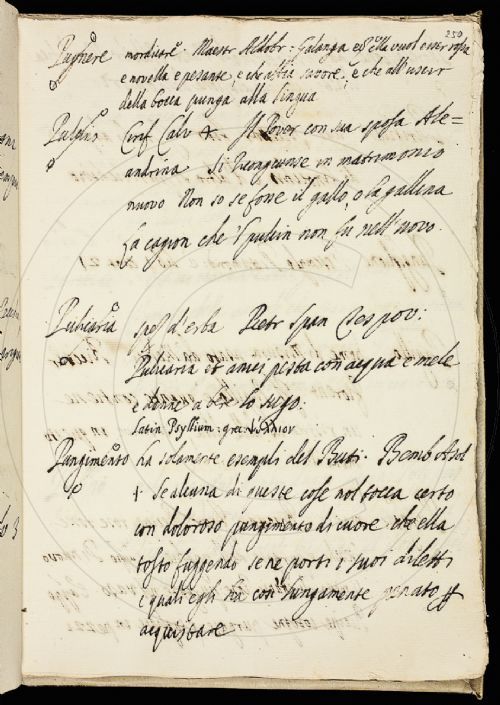 250
Pugnere mordicare. Maestr Aldobr: Galanga ed ella vuol esser rossa
e novella e pesante, e che abbia savore, e che all' uscir
della bocca punga alla lingua
Pulcino Ciriff Calv. Il Pover con sua sposa Ale=
andrina Si congiunse in matrimonio
nuovo Non so se fosse il gallo, o la gallina
La cagion che 'l pulcin non fu nell' uovo.
Pulicaria spez d'erba Pietr Span Tes pov:
Pulicaria et anici pesta con acqua e mele
e donne a bere lo sugo:
Latin Psyllium: grec. ψύλλιον
Pungimento ha solamente esempli del Buti. Bemb Asol
1. Se alcuna di queste cose nol tocca certo
con doloroso pungimento di cuore che ella
tosto fuggendo se ne porti i suoi diletti
i quali egli ha così lungamente penato
acquistare